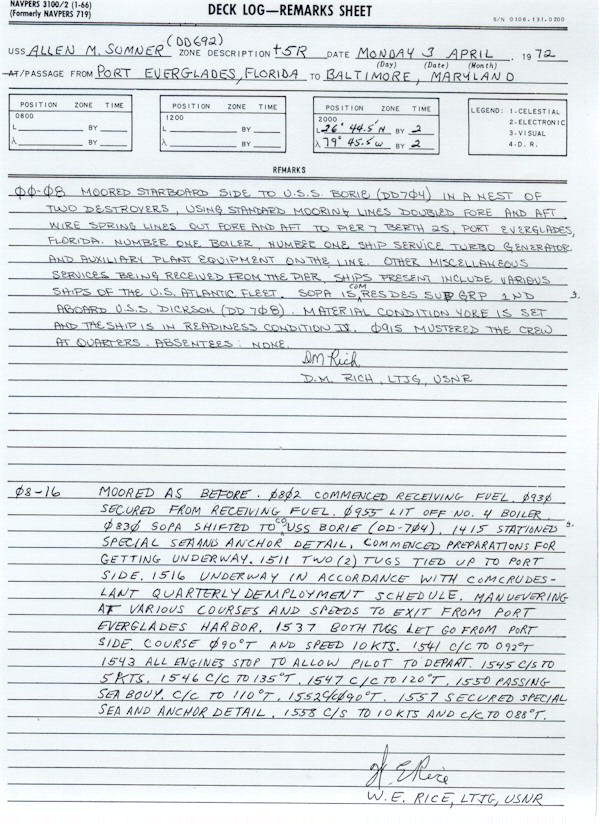 NAVPERS 3100/2 (1-66)
(Formerly NAVPERS 719)
DECK LOG—REMARKS SHEET
S/N 0106-131-0200
USS ALLEN M. SUMNER (DD692) ZONE DESCRIPTION +5R DATE MONDAY 3 APRIL, 1972
(Day) (Date) (Month)
AT/PASSAGE FROM PORT EVERGLADES, FLORIDA TO BALTIMORE, MARYLAND
POSITION ZONE TIME
0800
L BY
λ BY
POSITION ZONE TIME
1200
L BY
λ BY
POSITION ZONE TIME
2000
L 26° 44.5'N BY 2
λ 79° 45.5'W BY 2
LEGEND: 1-CELESTIAL
2-ELECTRONIC
3-VISUAL
4-D. R.
REMARKS
ØØ-Ø8 MOORED STARBOARD SIDE TO U.S.S. BORIE (DD7Ø4) IN A NEST OF
TWO DESTROYERS, USING STANDARD MOORING LINES DOUBLED FORE AND AFT
WIRE SPRING LINES OUT FORE AND AFT TO PIER 7 BERTH 25, PORT EVERGLADES,
FLORIDA. NUMBER ONE BOILER, NUMBER ONE SHIP SERVICE TURBO GENERATOR
AND AUXILIARY PLANT EQUIPMENT ON THE LINE. OTHER MISCELLANEOUS
SERVICES BEING RECEIVED FROM THE PIER, SHIPS PRESENT INCLUDE VARIOUS
SHIPS OF THE U.S. ATLANTIC FLEET. SOPA IS COM RES DES SUP GRP 2ND
ABOARD U.S.S. DICKSON (DD 7Ø8). MATERIAL CONDITION YOKE IS SET
AND THE SHIP IS IN READINESS CONDITION IV. Ø915 MUSTERED THE CREW
AT QUARTERS. ABSENTEES: NONE.
DM Rich
D.M. RICH, LTJG, USNR
Ø8-16 MOORED AS BEFORE. Ø8Ø2 COMMENCED RECEIVING FUEL. Ø93Ø
SECURED FROM RECEIVING FUEL. Ø955 LIT OFF NO. 4 BOILER.
Ø83Ø SOPA SHIFTED TO CO USS BORIE (DD-7Ø4). 1415 STATIONED
SPECIAL SEA AND ANCHOR DETAIL. COMMENCED PREPARATIONS FOR
GETTING UNDERWAY. 1511 TWO (2) TUGS TIED UP TO PORT
SIDE. 1516 UNDERWAY IN ACCORDANCE WITH COMCRUDES-
LANT QUARTERLY DEMPLOYMENT SCHEDULE. MANUEVERING
AT VARIOUS COURSES AND SPEEDS TO EXIT FROM PORT
EVERGLADES HARBOR. 1537 BOTH TUGS LET GO FROM PORT
SIDE. COURSE Ø9Ø°T AND SPEED 10 KTS. 1541 C/C TO Ø92°T
1543 ALL ENGINES STOP TO ALLOW PILOT TO DEPART. 1545 C/S TO
5 KTS. 1546 C/C TO 135°T. 1547 C/C TO 120°T. 1550 PASSING
SEA BOUY. C/C TO 110°T. 1552 C/C Ø9Ø°T. 1557 SECURED SPECIAL
SEA AND ANCHOR DETAIL. 1558 C/S TO 10 KTS AND C/C TO Ø88°T.
W. E. Rice
W. E. RICE, LTJG, USNR